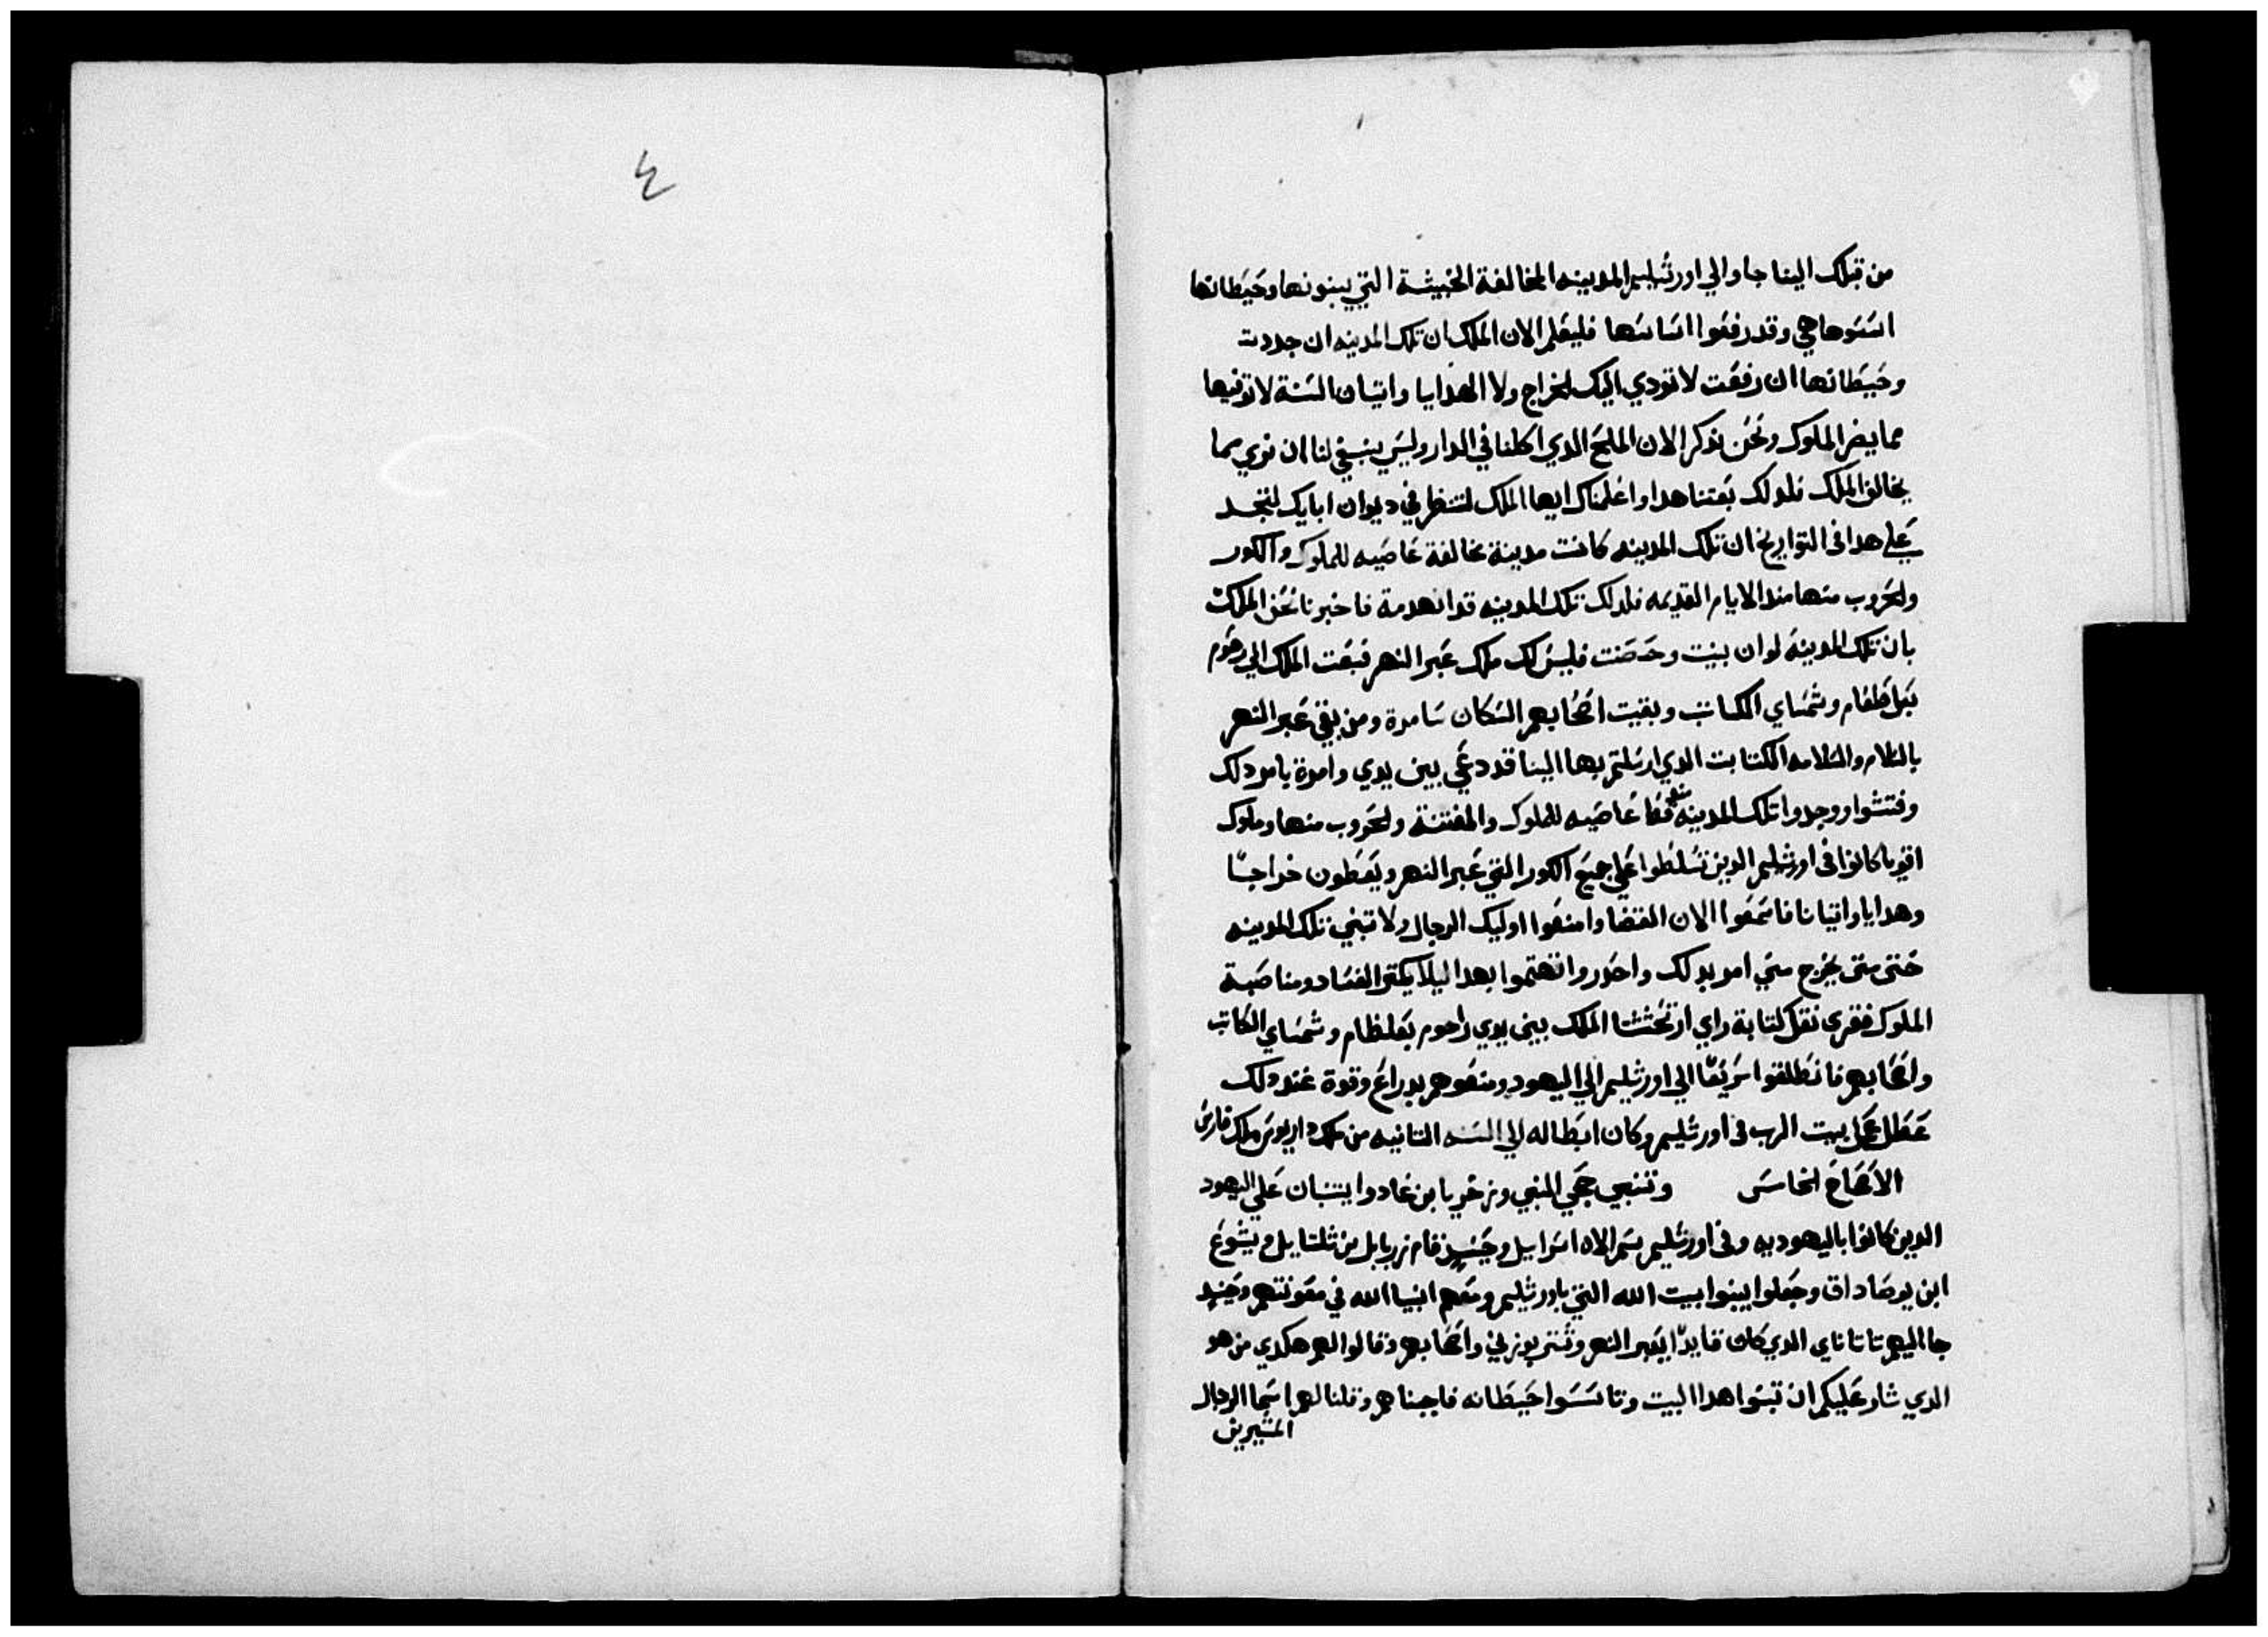 من قبلك الينا جاوا الي اورشليم المدينه المخالفة الخبيثة التي يبنونها وحيطانها
اسسوها هي وقد رفعوا اساسها فليعلم الان الملك ان تلك المدينه ان جددت
وحيطانها ان رفعت لا تودي اليك الخراج ولا الهدايا واتيان السنة لا توتيها
مما يضر الملوك ونحن نذكر الان الملح الدي اكلنا في الدار وليس ينبغي لنا ان نري مما
يخالف الملك فلدلك بعتنا هدا واعلمناك ايها الملك لتنظر في ديوان ابايك لتجد
علي هدا في التواريخ ان تلك المدينه كانت مدينة مخالفة عاصيه للملوك والكور
والحروب منها مند الايام القديمه فلدلك تلك المدينه قد انهدمة فاخبرنا نحن الملك
بان تلك المدينه لو ان بنيت وحصنت فليس لك ملك عبر النهر فبعت الملك الي رحوم
بعل طعام وشمساي الكاتب وبقيت اصحابهم السكان سامرة ومن بقي عبر النهر
بالسلام والسلامه الكتابت الدي ارسلتم بها الينا قد دعي بين يدي وامرة يامر دلك
وفتشوا ووجدوا تلك المدينه عاصيه للملوك والمفتنة والحروب منها وملوك
اقويا كانوا في اورشليم الدين تسلطوا علي جميع الكور التي عبر النهر ويعطون خراجا
وهدايا واتيانا فاسمعوا الان القضا وامنعوا اوليك الرجال ولا تبني تلك المدينه
حتى متى يخرج مني امر بدلك واحدروا تهتموا بهدا ليلا يكتر الفساد ومناصبة
الملوك فقري نقل كتابة راي ارتحشتا الملك بين يدي راحوم بعلطام وشمساي الكاتب
واصحابهم فانطلقوا سريعا الي اورشليم الي اليهود ومنعوهم بدراع وقوة عند دلك
عطل عمل بيت الرب في اورشليم وكان ابطاله الي السنه التانيه من ملك داريوس ملك فارس
الاصحاح الخامس وتنبي حجي النبي وزخريا ابن عادوا يتنبان علي اليهود
الدين كانوا باليهوديه وفي اورشليم بسم الاه اسراييل وحينيد فقام زربابل بن شلتاييل ويشوع
ابن يوصاداق وجعلوا يبنوا بيت الله التي باورشليم ومعهم انبيا الله في معونتهم وحينيد
جا اليهم تاتاناي الدي كان قايدا بعبر النهر وشتربوزني واصحابهم وقالوا لهم هكدي من هو
الدي شار عليكم ان تبنوا هدا البيت وتاسسوا حيطانه فاجبناهم وقلنا لهم اسما الرجال
المشيرين
٤